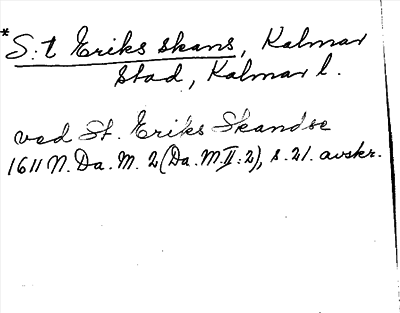 * S:t Eriks skans, Kalmar
stad, Kalmar l.
ved St. Eriks Skandse
1611 N. Da. M. 2 (Da. M. II:2), s. 21. avskr.